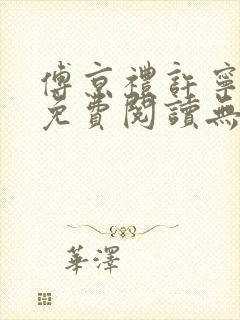 傅京禮許寧
免費閱讀無
華澤